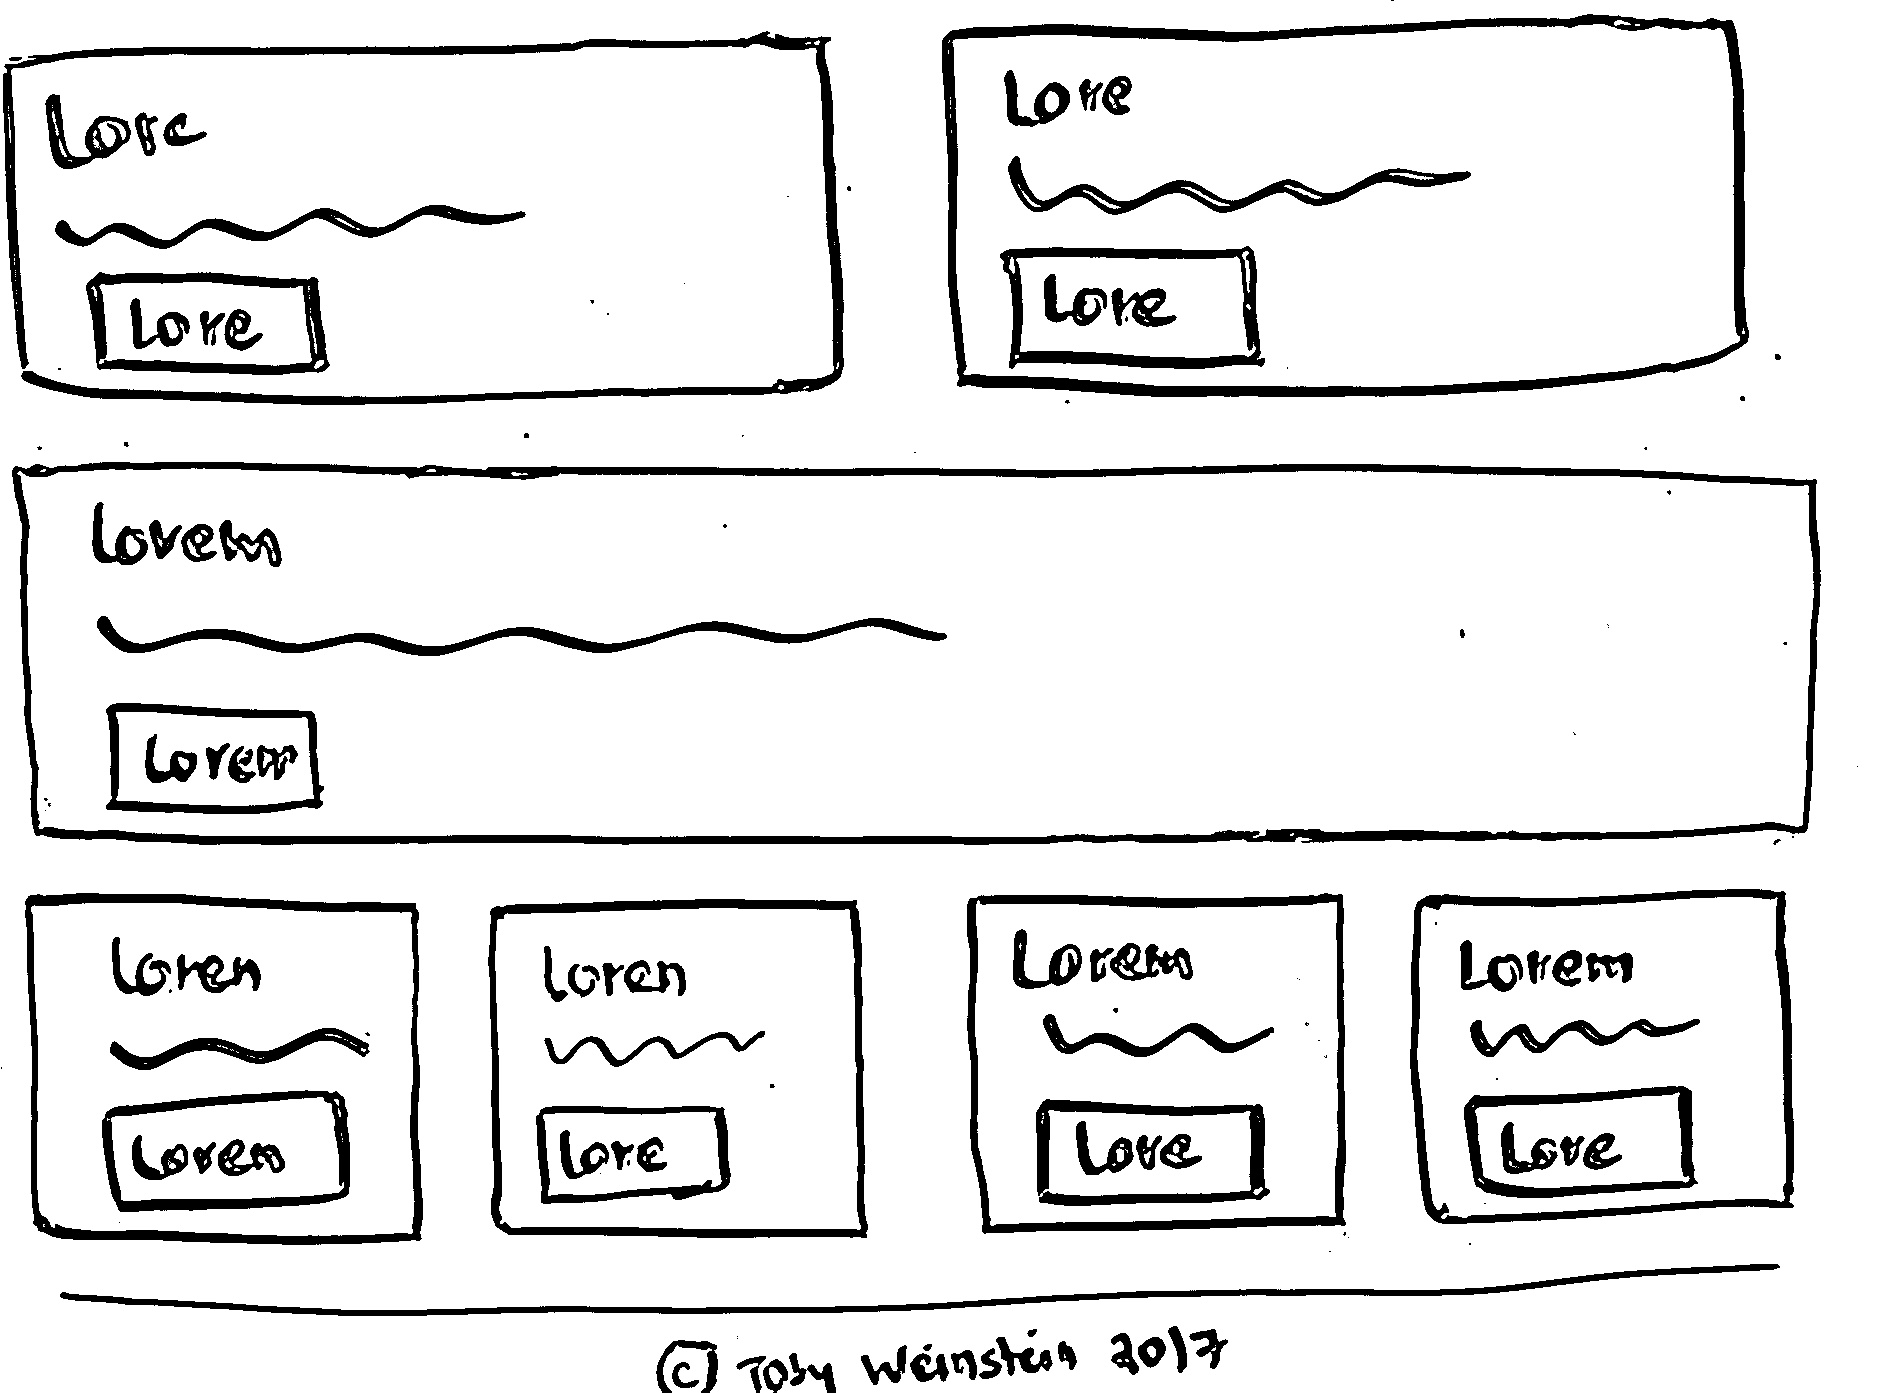 Lore
Lore
Lore
Lore
Lorem
Lorem
Loren
Loren
Lorem
Lorem
Lorem
Lore
Lore
Lore
© Toby Weinstein 2017